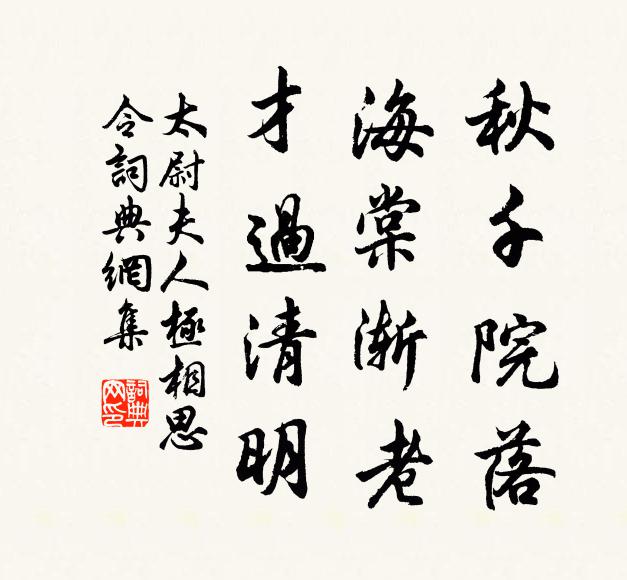 秋千院落
海棠渐老
才過清明
太尉夫人極相思
令詞典網集
詞典網印